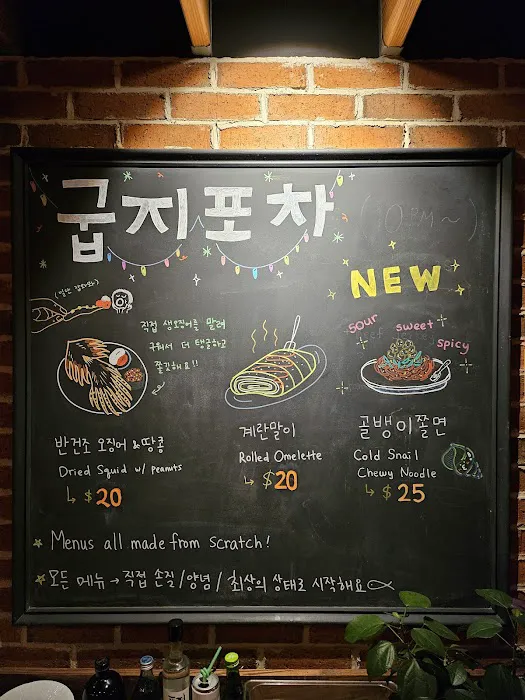 굽지포차
NEW
직접 생오징어를 말려
구워서 더 탱글하고
쫄깃해요!!
sour sweet spicy
반건조 오징어 &땅콩
Dried Squid w/ Peanuts
↳ $20
계란말이
Rolled Omelette
↳ $20
골뱅이쫄면
Cold Snail
Chewy Noodle
↳ $25
Menus all made from scratch!
모든 메뉴 → 직접 손질/양념/ 최상의 상태로 시작해요